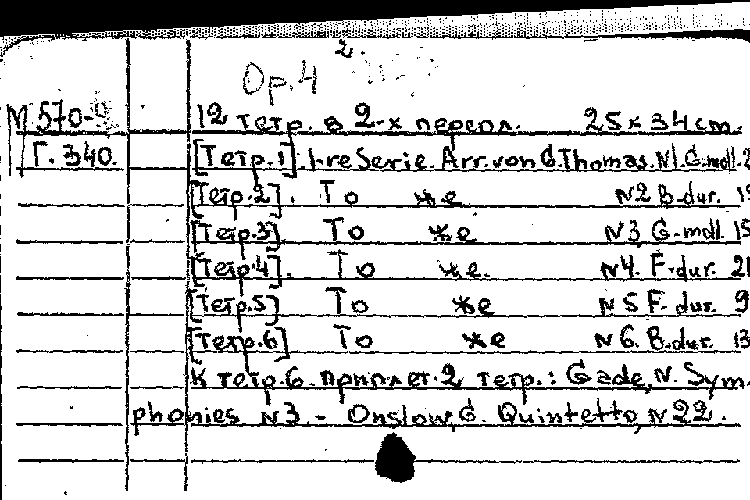 2.
Op.4
М 570-
12 тетр. в 2-х перепл. 25×34 cm.
Г. 340.
[Тетр.1] I-re Serie. Arr. von G. Thomas. N1. G-moll. 2
[Тетр.2]. То же N2 B-dur. 1
[Тетр.3] То же N3 G-moll 15
[Тетр.4]. То же. N4. F-dur. 21
[Тетр.5] То же N5 F-dur. 9
[Тетр.6] То же N6. B-dur. 13
К тетр.6 приплет. 2 тетр.: Gade, N. Sym-
phonies N3. – Onslow, G. Quintetto, N22.